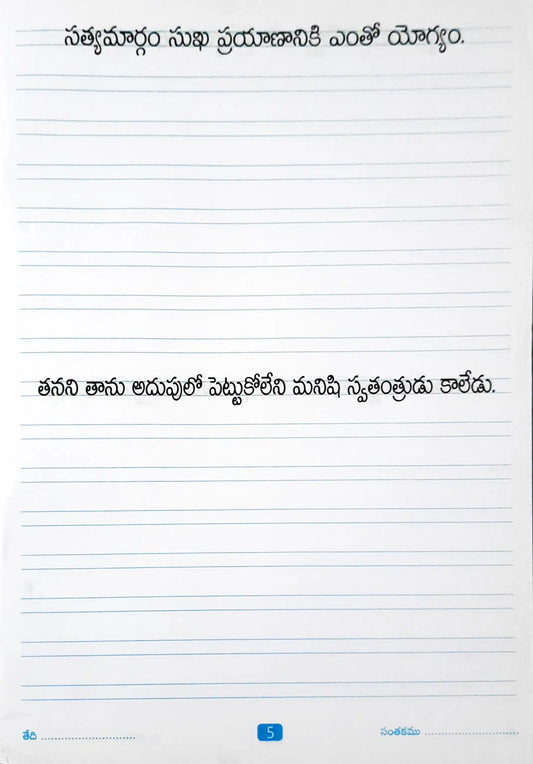 సత్యమార్గం సుఖ ప్రయాణానికి ఎంతో యోగ్యం.
తనని తాను అదుపులో పెట్టుకోలేని మనిషి స్వతంత్రుడు కాలేడు.
తేది ............................ 5 సంతకము ............................